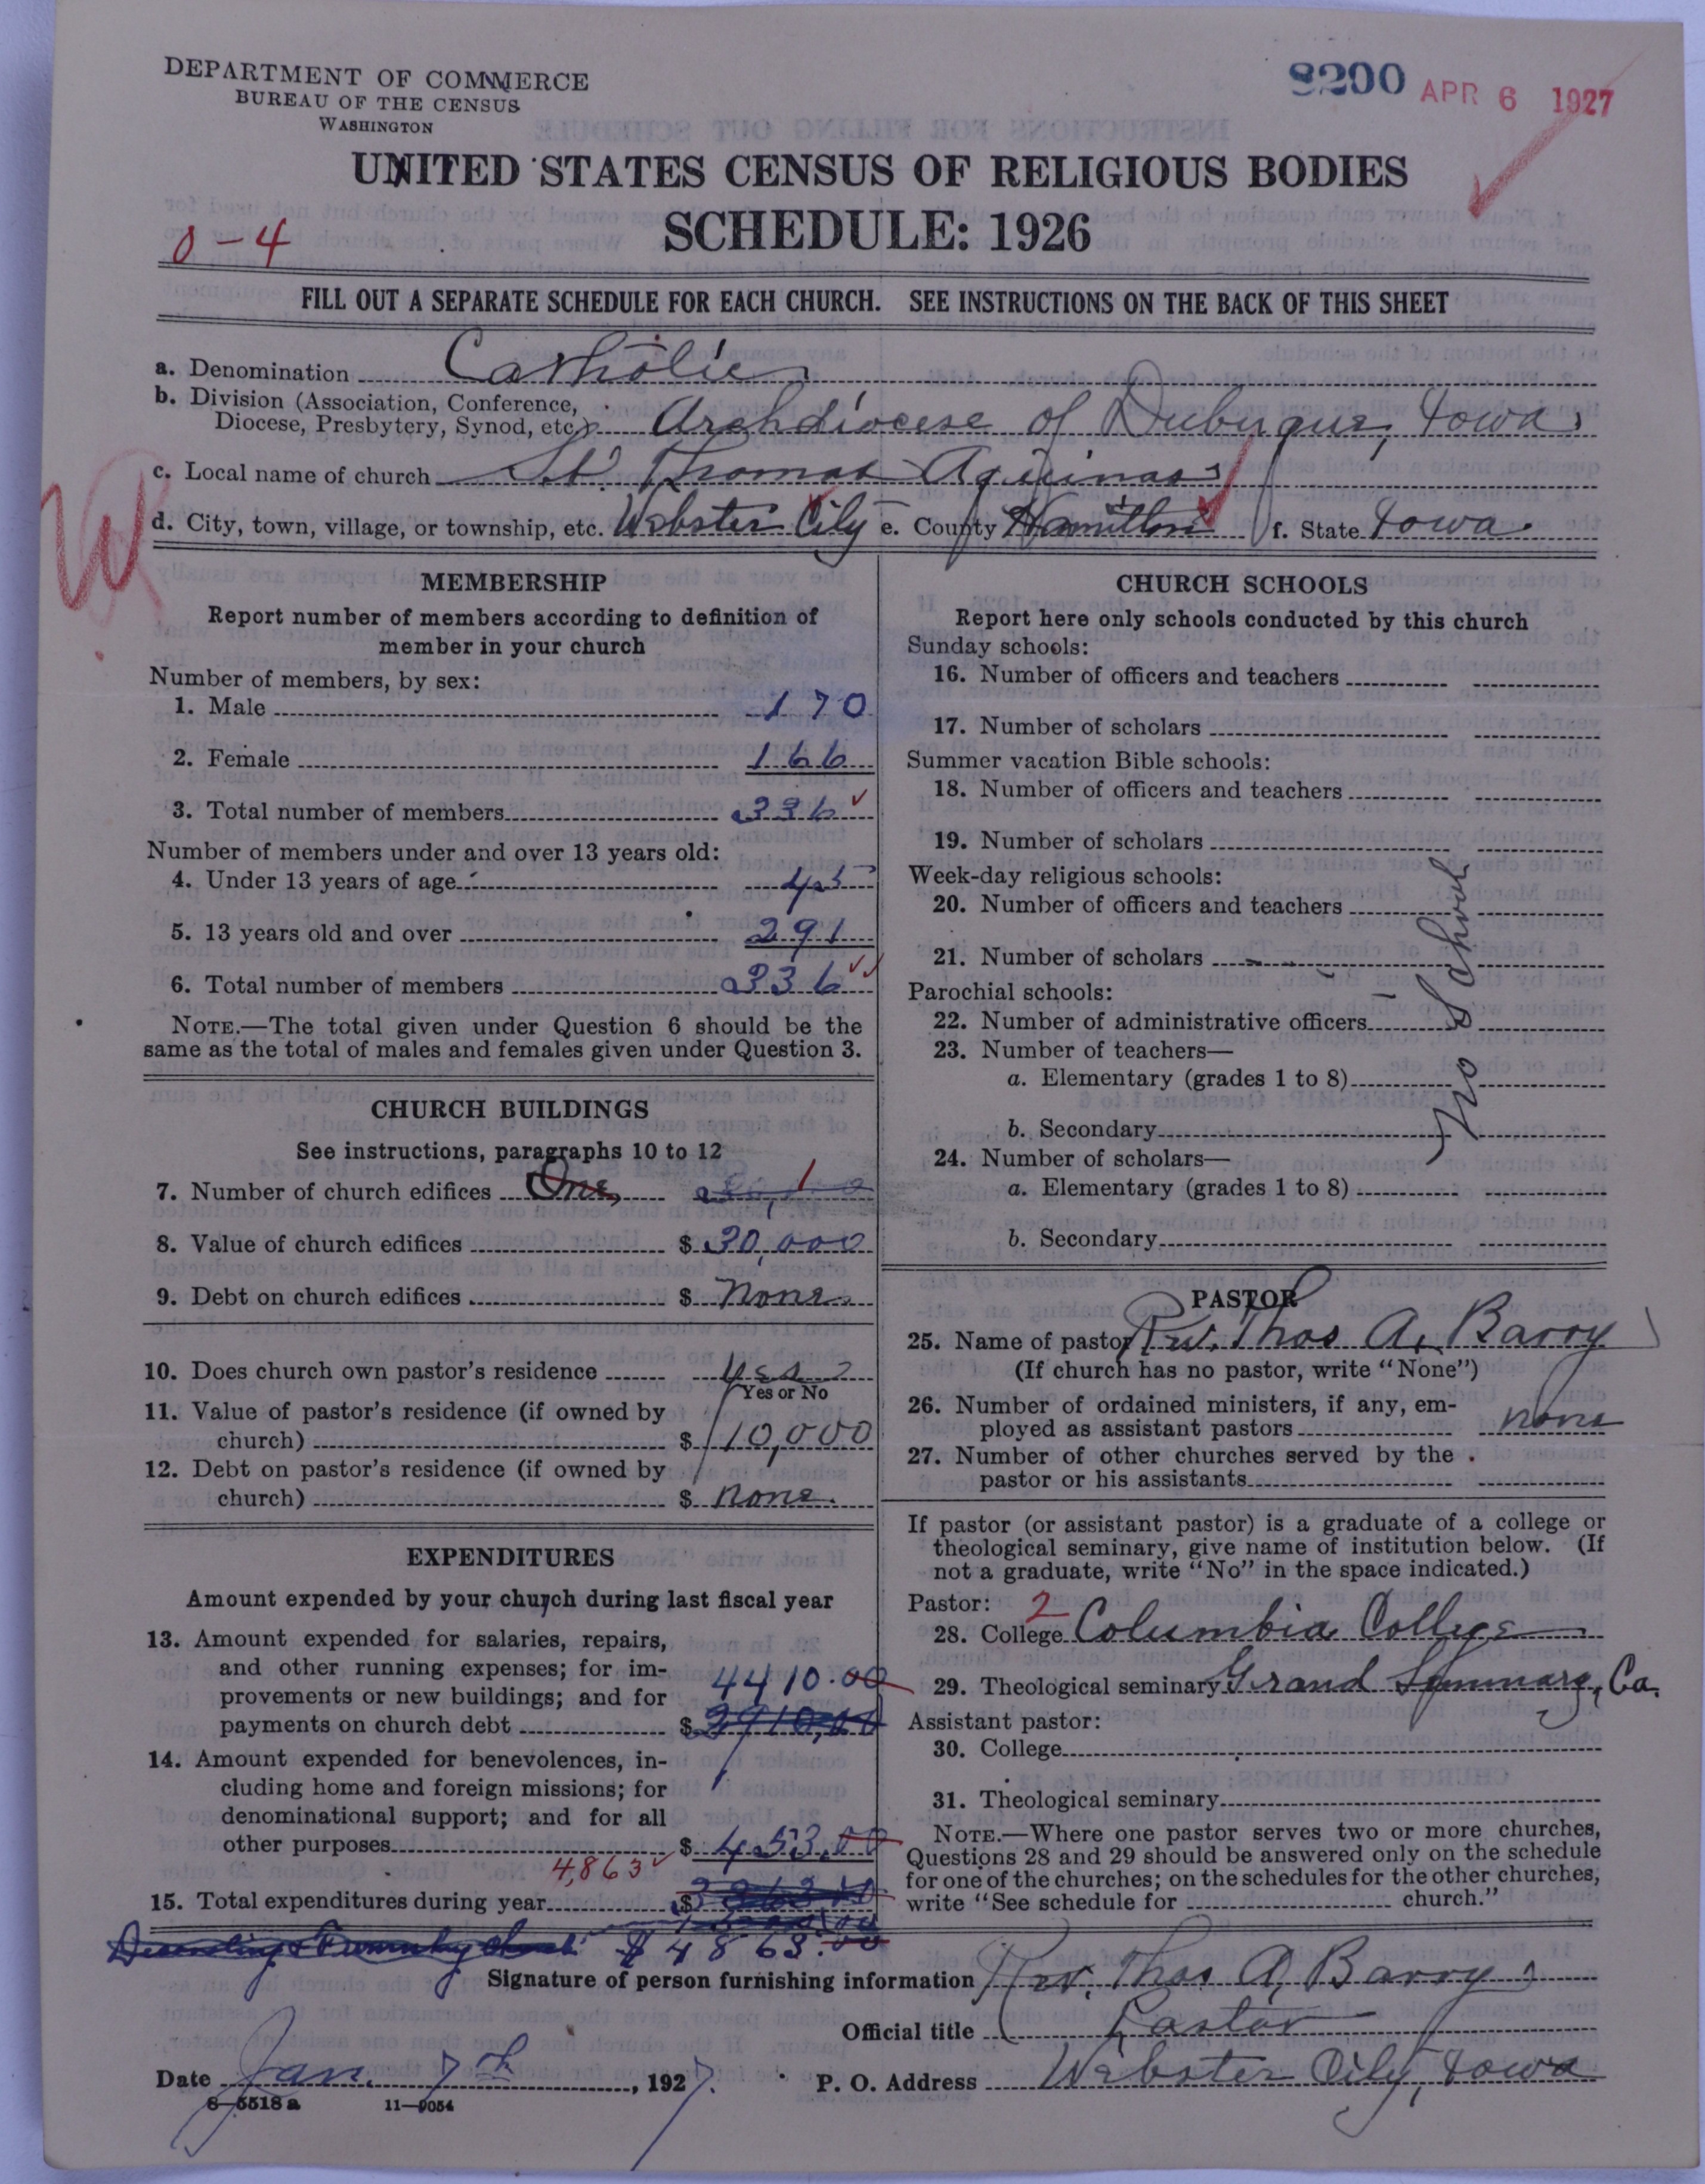 DEPARTMENT OF COMMERCE
BUREAU OF THE CENSUS
WASHINGTON
8200 APR 6 1927
UNITED STATES CENSUS OF RELIGIOUS BODIES
SCHEDULE: 1926
0-4
FILL OUT A SEPARATE SCHEDULE FOR EACH CHURCH. SEE INSTRUCTIONS ON THE BACK OF THIS SHEET
a. Denomination Catholic
b. Division (Association, Conference,
Diocese, Presbytery, Synod, etc.) Archdiocese of Dubuque, Iowa
c. Local name of church St. Thomas Aquinas
d. City, town, village, or township, etc. Webster City e. County Hamilton f. State Iowa.
MEMBERSHIP
Report number of members according to definition of
member in your church
Number of members, by sex:
1. Male 170
2. Female 166
3. Total number of members 336
Number of members under and over 13 years old:
4. Under 13 years of age 45
5. 13 years old and over 291
6. Total number of members 336
NOTE.—The total given under Question 6 should be the
same as the total of males and females given under Question 3.
CHURCH BUILDINGS
See instructions, paragraphs 10 to 12
7. Number of church edifices One 1
8. Value of church edifices $ 30,000
9. Debt on church edifices $ None
10. Does church own pastor's residence yes
Yes or No
11. Value of pastor's residence (if owned by
church) $ 10,000
12. Debt on pastor's residence (if owned by
church) $ None.
EXPENDITURES
Amount expended by your church during last fiscal year
13. Amount expended for salaries, repairs,
and other running expenses; for im-
provements or new buildings; and for 4410.00
payments on church debt $ 2910.00
14. Amount expended for benevolences, in-
cluding home and foreign missions; for
denominational support; and for all
other purposes $ 453.00
4,863
15. Total expenditures during year $
$4863.00
CHURCH SCHOOLS
Report here only schools conducted by this church
Sunday schools:
16. Number of officers and teachers
17. Number of scholars
Summer vacation Bible schools:
18. Number of officers and teachers
19. Number of scholars
Week-day religious schools:
20. Number of officers and teachers
21. Number of scholars
Parochial schools:
22. Number of administrative officers
23. Number of teachers—
a. Elementary (grades 1 to 8)
b. Secondary
24. Number of scholars—
a. Elementary (grades 1 to 8)
b. Secondary
No School
PASTOR
25. Name of pastor Rev. Thos A. Barry
(If church has no pastor, write "None")
26. Number of ordained ministers, if any, em-
ployed as assistant pastors none
27. Number of other churches served by the
pastor or his assistants
If pastor (or assistant pastor) is a graduate of a college or
theological seminary, give name of institution below. (If
not a graduate, write "No" in the space indicated.)
Pastor: 2
28. College Columbia College
29. Theological seminary Grand Seminary, Ca.
Assistant pastor:
30. College
31. Theological seminary
NOTE.—Where one pastor serves two or more churches,
Questions 28 and 29 should be answered only on the schedule
for one of the churches; on the schedules for the other churches,
write "See schedule for church."
Signature of person furnishing information Rev. Thos A. Barry
Official title Pastor
Date Jan. 7th, 1927. P. O. Address Webster City, Iowa
8-5518a 11-9054